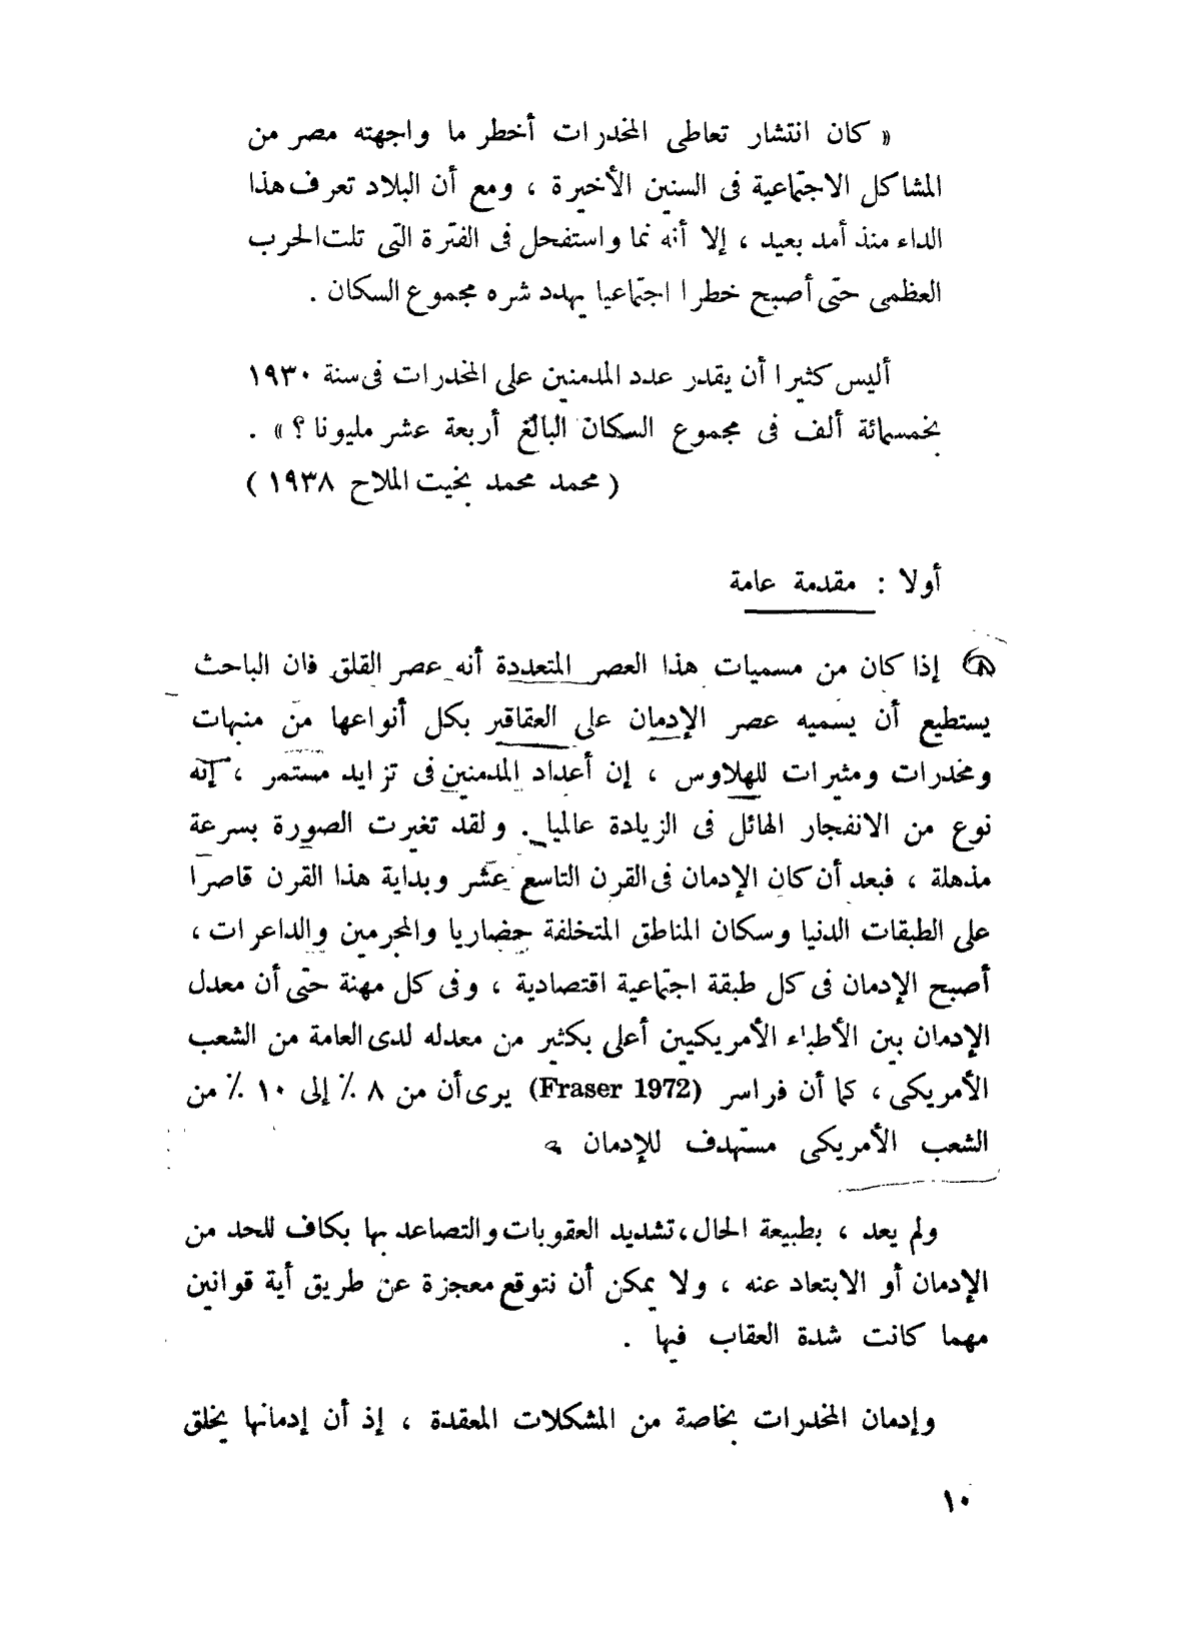 « كان انتشار تعاطى المخدرات أخطر ما واجهته مصر من
المشاكل الاجتماعية فى السنين الأخيرة ، ومع أن البلاد تعرف هذا
الداء منذ أمد بعيد ، إلا أنه نما واستفحل فى الفترة التى تلت الحرب
العظمى حتى أصبح خطرا اجتماعيا يهدد شره مجموع السكان .
أليس كثيرا أن يقدر عدد المدمنين على المخدرات فى سنة ١٩٣٠
بخمسمائة ألف فى مجموع السكان البالغ أربعة عشر مليونا ؟ » .
( محمد محمد بخيت الملاح ١٩٣٨ )
أولا : مقدمة عامة
إذا كان من مسميات هذا العصر المتعددة أنه عصر القلق فان الباحث
يستطيع أن يسميه عصر الإدمان على العقاقير بكل أنواعها من منبهات
ومخدرات ومثيرات للهلاوس ، إن أعداد المدمنين فى تزايد مستمر ، إنه
نوع من الانفجار الهائل فى الزيادة عالميا . ولقد تغيرت الصورة بسرعة
مذهلة ، فبعد أن كان الإدمان فى القرن التاسع عشر وبداية هذا القرن قاصرا
على الطبقات الدنيا وسكان المناطق المتخلفة حضاريا والمجرمين والداعرات ،
أصبح الإدمان فى كل طبقة اجتماعية اقتصادية ، وفى كل مهنة حتى أن معدل
الإدمان بين الأطباء الأمريكيين أعلى بكثير من معدله لدى العامة من الشعب
الأمريكى ، كما أن فراسر (Fraser 1972) يرى أن من ٨ ٪ إلى ١٠ ٪ من
الشعب الأمريكى مستهدف للإدمان
ولم يعد ، بطبيعة الحال ، تشديد العقوبات والتصاعد بها بكاف للحد من
الإدمان أو الابتعاد عنه ، ولا يمكن أن نتوقع معجزة عن طريق أية قوانين
مهما كانت شدة العقاب فيها .
وإدمان المخدرات بخاصة من المشكلات المعقدة ، إذ أن إدمانها يخلق
١٠